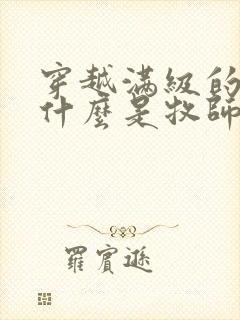 穿越滿級的
什麼是牧師
羅賓遜